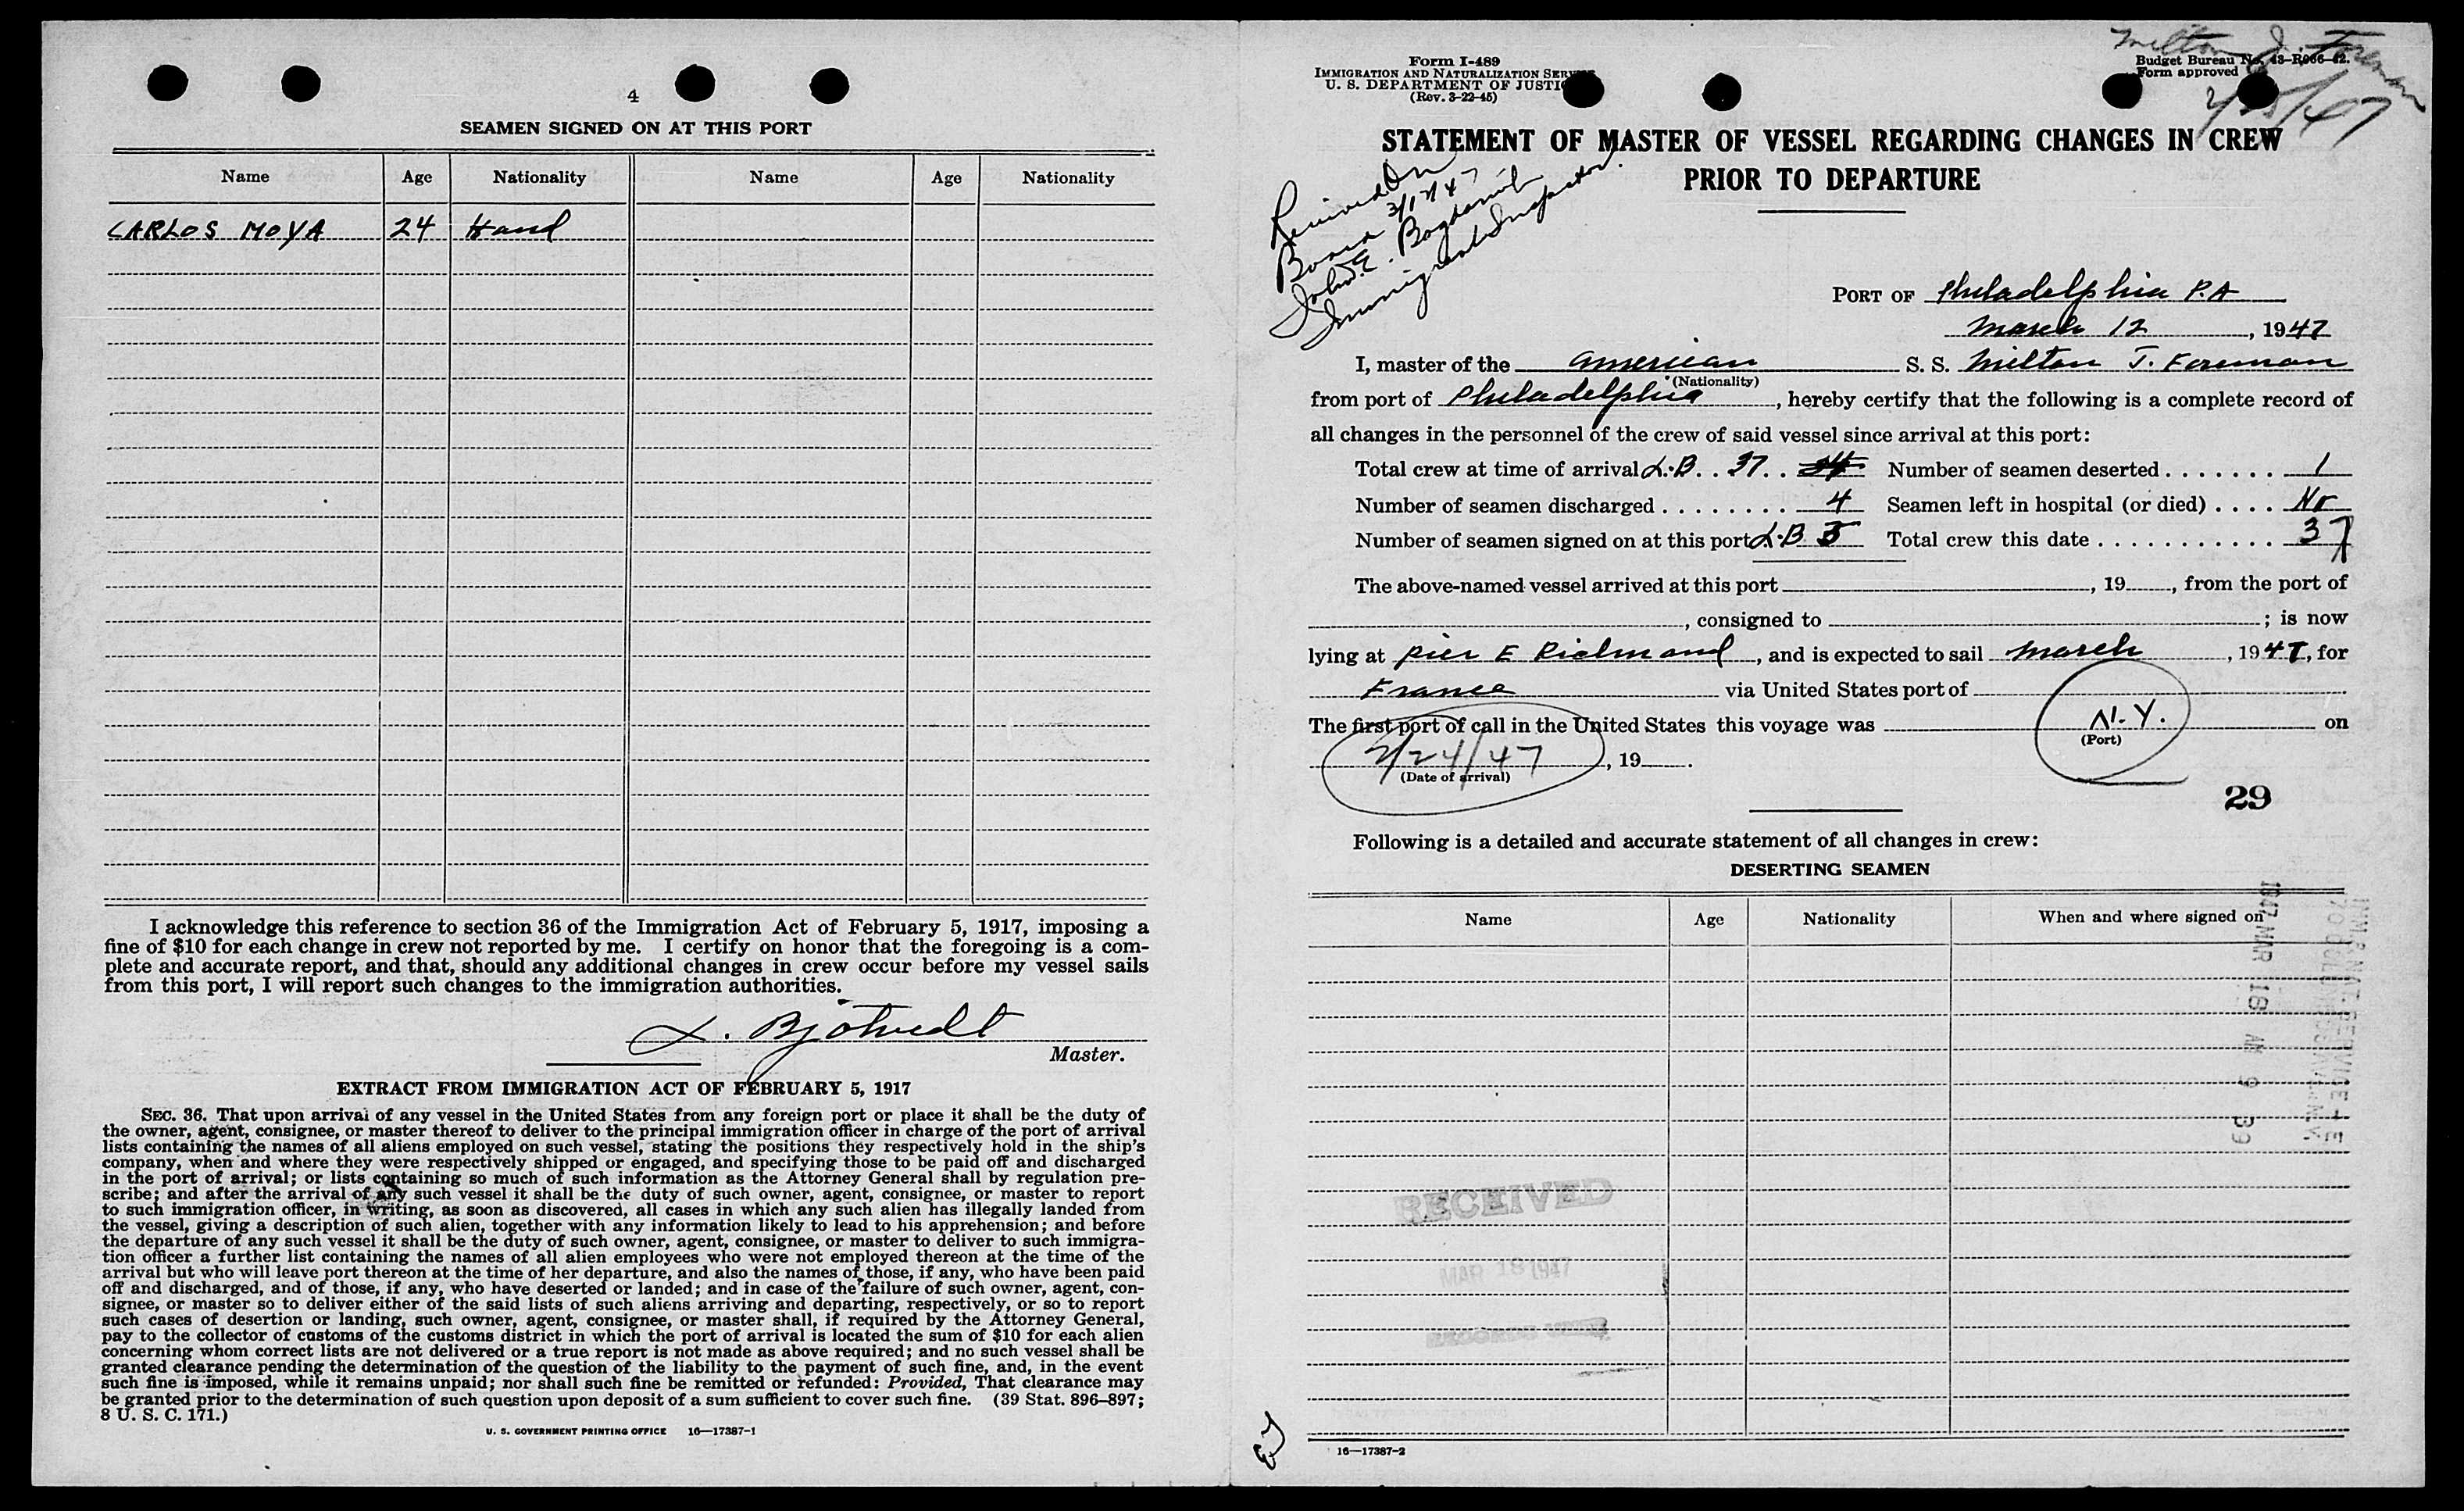 4
SEAMEN SIGNED ON AT THIS PORT
Name Age Nationality Name Age Nationality
CARLOS MOYA 24 Hond
I acknowledge this reference to section 36 of the Immigration Act of February 5, 1917, imposing a
fine of $10 for each change in crew not reported by me. I certify on honor that the foregoing is a com-
plete and accurate report, and that, should any additional changes in crew occur before my vessel sails
from this port, I will report such changes to the immigration authorities.
L. Bjotvedt
Master.
EXTRACT FROM IMMIGRATION ACT OF FEBRUARY 5, 1917
SEC. 36. That upon arrival of any vessel in the United States from any foreign port or place it shall be the duty of
the owner, agent, consignee, or master thereof to deliver to the principal immigration officer in charge of the port of arrival
lists containing the names of all aliens employed on such vessel, stating the positions they respectively hold in the ship's
company, when and where they were respectively shipped or engaged, and specifying those to be paid off and discharged
in the port of arrival; or lists containing so much of such information as the Attorney General shall by regulation pre-
scribe; and after the arrival of any such vessel it shall be the duty of such owner, agent, consignee, or master to report
to such immigration officer, in writing, as soon as discovered, all cases in which any such alien has illegally landed from
the vessel, giving a description of such alien, together with any information likely to lead to his apprehension; and before
the departure of any such vessel it shall be the duty of such owner, agent, consignee, or master to deliver to such immigra-
tion officer a further list containing the names of all alien employees who were not employed thereon at the time of the
arrival but who will leave port thereon at the time of her departure, and also the names of those, if any, who have been paid
off and discharged, and of those, if any, who have deserted or landed; and in case of the failure of such owner, agent, con-
signee, or master so to deliver either of the said lists of such aliens arriving and departing, respectively, or so to report
such cases of desertion or landing, such owner, agent, consignee, or master shall, if required by the Attorney General,
pay to the collector of customs of the customs district in which the port of arrival is located the sum of $10 for each alien
concerning whom correct lists are not delivered or a true report is not made as above required; and no such vessel shall be
granted clearance pending the determination of the question of the liability to the payment of such fine, and, in the event
such fine is imposed, while it remains unpaid; nor shall such fine be remitted or refunded: Provided, That clearance may
be granted prior to the determination of such question upon deposit of a sum sufficient to cover such fine. (39 Stat. 896–897;
8 U. S. C. 171.)
U. S. GOVERNMENT PRINTING OFFICE 16—17387-1
Milton J. Foreman
Form I-489
IMMIGRATION AND NATURALIZATION SERVICE
U. S. DEPARTMENT OF JUSTICE
(Rev. 3-22-45)
Budget Bureau No. 43-R066-42.
Form approved
STATEMENT OF MASTER OF VESSEL REGARDING CHANGES IN CREW
PRIOR TO DEPARTURE
Received On
Board 3/17/47
John E.
Immigrant Inspector.
PORT OF Philadelphia P.A
March 12, 1947
I, master of the American S. S. Milton J. Foreman
(Nationality)
from port of Philadelphia, hereby certify that the following is a complete record of
all changes in the personnel of the crew of said vessel since arrival at this port:
Total crew at time of arrival L.B. 37 Number of seamen deserted 1
Number of seamen discharged 4 Seamen left in hospital (or died) No
Number of seamen signed on at this port L.B 5 Total crew this date 37
The above-named vessel arrived at this port , 19 , from the port of
, consigned to ; is now
lying at pier E Richmond, and is expected to sail March, 1947, for
France via United States port of
The first port of call in the United States this voyage was N.Y. on
(Port)
2/24/47, 19 .
(Date of arrival)
29
Following is a detailed and accurate statement of all changes in crew:
DESERTING SEAMEN
Name Age Nationality When and where signed on
1947 MAR 18 AM 9 39
RECEIVED
MAR 18 1947
RECORDS UNIT
16—17387-2